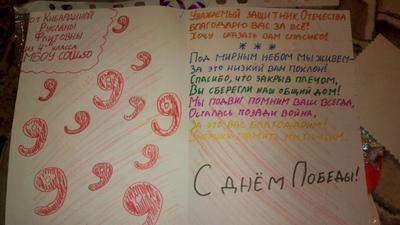 от Кибардиной
Русланы
из 4 класса
МБОУ СОШ
Уважаемый защитник Отечества
благодарю вас за всё!
Хочу сказать вам спасибо!
Под мирным небом мы живём-
За это низкий вам поклон!
Спасибо, что закрыв плечом,
Вы сберегли наш общий дом!
Мы подвиг помним ваш всегда,
Осталась позади война,
За это вас благодарим!
С днём Победы!